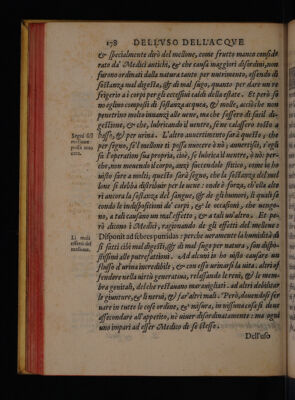 178 DELL'VSO DELL'ACQVE
& spetialmente dirò del mellone, come frutto manco conside
rato da' Medici antichi, & che causa maggiori disordini, non
furono ordinati dalla natura tanto per nutrimento, essendo di
sostanza mal digesta, & di mal sugo, quanto per dare un re
frigerio a i corpi per gli eccessivi caldi della estate. Et però fu
rono composti di sostanza acquea, & molle, acciò che non
penetrino molto innanzi alle uene, ma che fussero di facil di-
gestione, & che, lubricando il uentre, se ne calassero tosto a
basso, & per urina. L'altro auuertimento sarà questo, che
per segno, se'l mellone ti possa nuocere ò nò; auuertisci, s'egli
fa l'operation sua propria, cioè, se lubrica il uentre, ò nò: per-
che, non mouendo il corpo, anzi facendolo stitico, come io ho
uisto fare a molti; questo sarà segno, che la sostanza del mel
lone si debba distribuir per le uene: onde è forza, ch'ella alte
ri ancora la sostanza del sangue, & de gli humori, i quali se
condo le indispositioni de' corpi, & le occasioni, che uengo-
no, a tali causano un mal'effetto, & a tali un'altro. Et pe-
rò dicono i Medici, ragionando de gli effetti del mellone:
Disponit ad febres putridas: perche ueramente la humidità di
si fatti cibi mal digesti, & di mal sugo per natura, son dispo-
stissimi alle putrefattioni. Ad alcuni io ho uisto causare un
flusso d'urina incredibile, & con essa urinarsi la uita. altri of
fendere nella uirtù generatiua, rilassando le reni, & le mem-
bra genitali, del che restauano marauigliati: ad altri debilitar
le giunture, & li nerui, & far'altri mali. Però, douendosi ser
uare in tutte le cose ordine, & misura, in nissuna cosa si deue
assecondare all'appetito, nè uiuer disordinatamente: ma ogni
uno impari ad esser Medico di se stesso.
Dell'uso
Segni del
mellone
possa nuo
cere.
Li mali
effetti del
mellone.